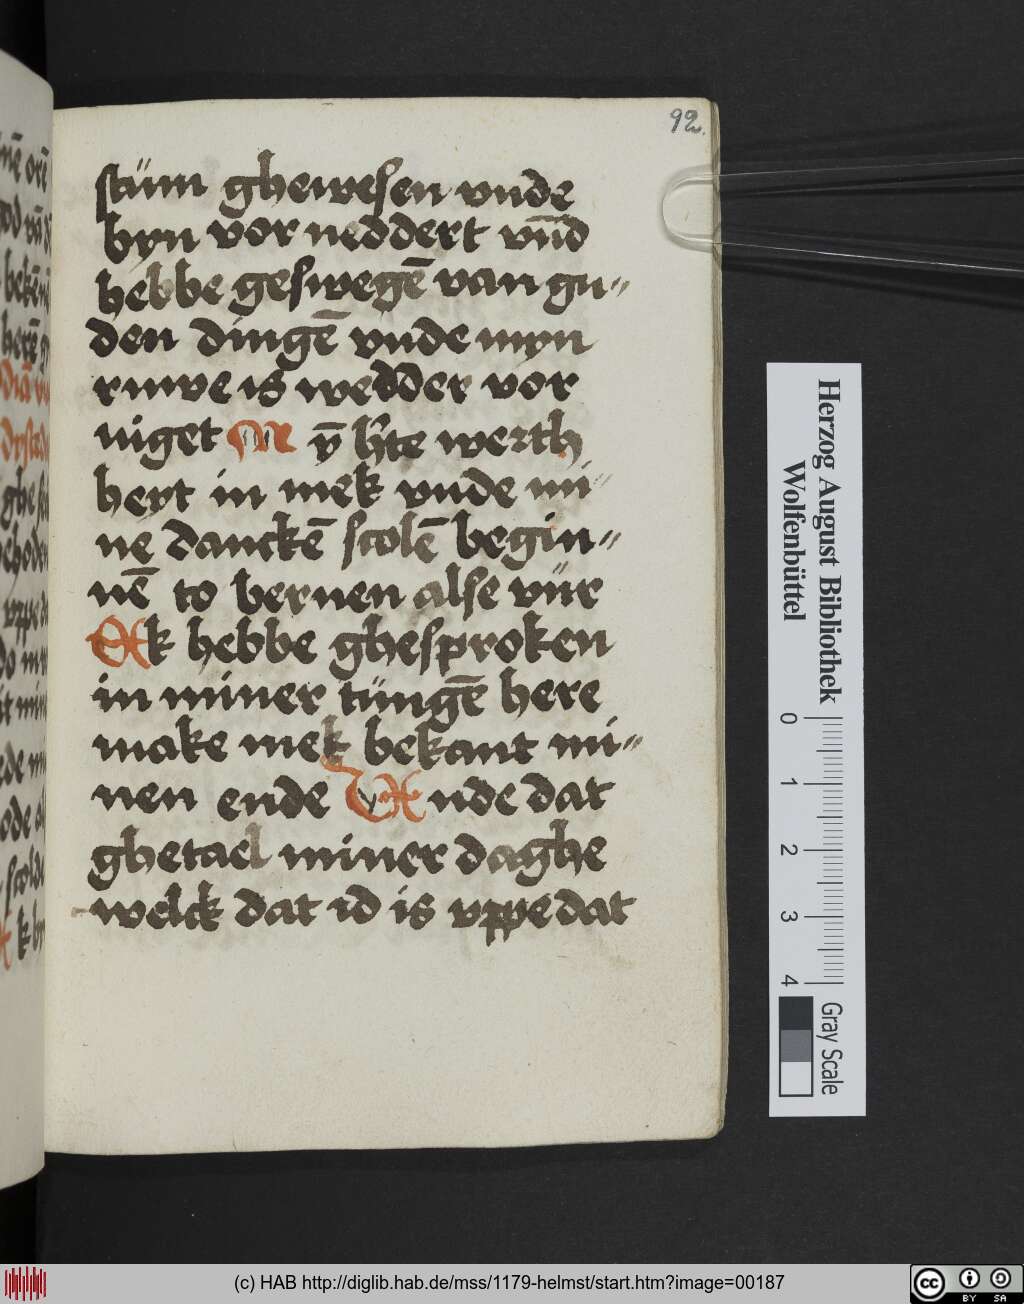 92.
stüm ghewesen vnde
byn vor neddert vn̄d
hebbe geswegē van gu„
den dingē vnde myn
ruwe is wedder vor
niget M ȳ h'te werth
heyt in mek vnde mi„
ne danckē scolē begin„
nē to bernen alse vür
Ek hebbe ghesproken
in miner tüngē here
make mek bekant mi„
nen ende Vnde dat
ghetael miner daghe
welck dat id is vppe dat
Herzog August Bibliothek
Wolfenbüttel
0 1 2 3 4
Gray Scale
(c) HAB http://diglib.hab.de/mss/1179-helmst/start.htm?image=00187
cc BY SA